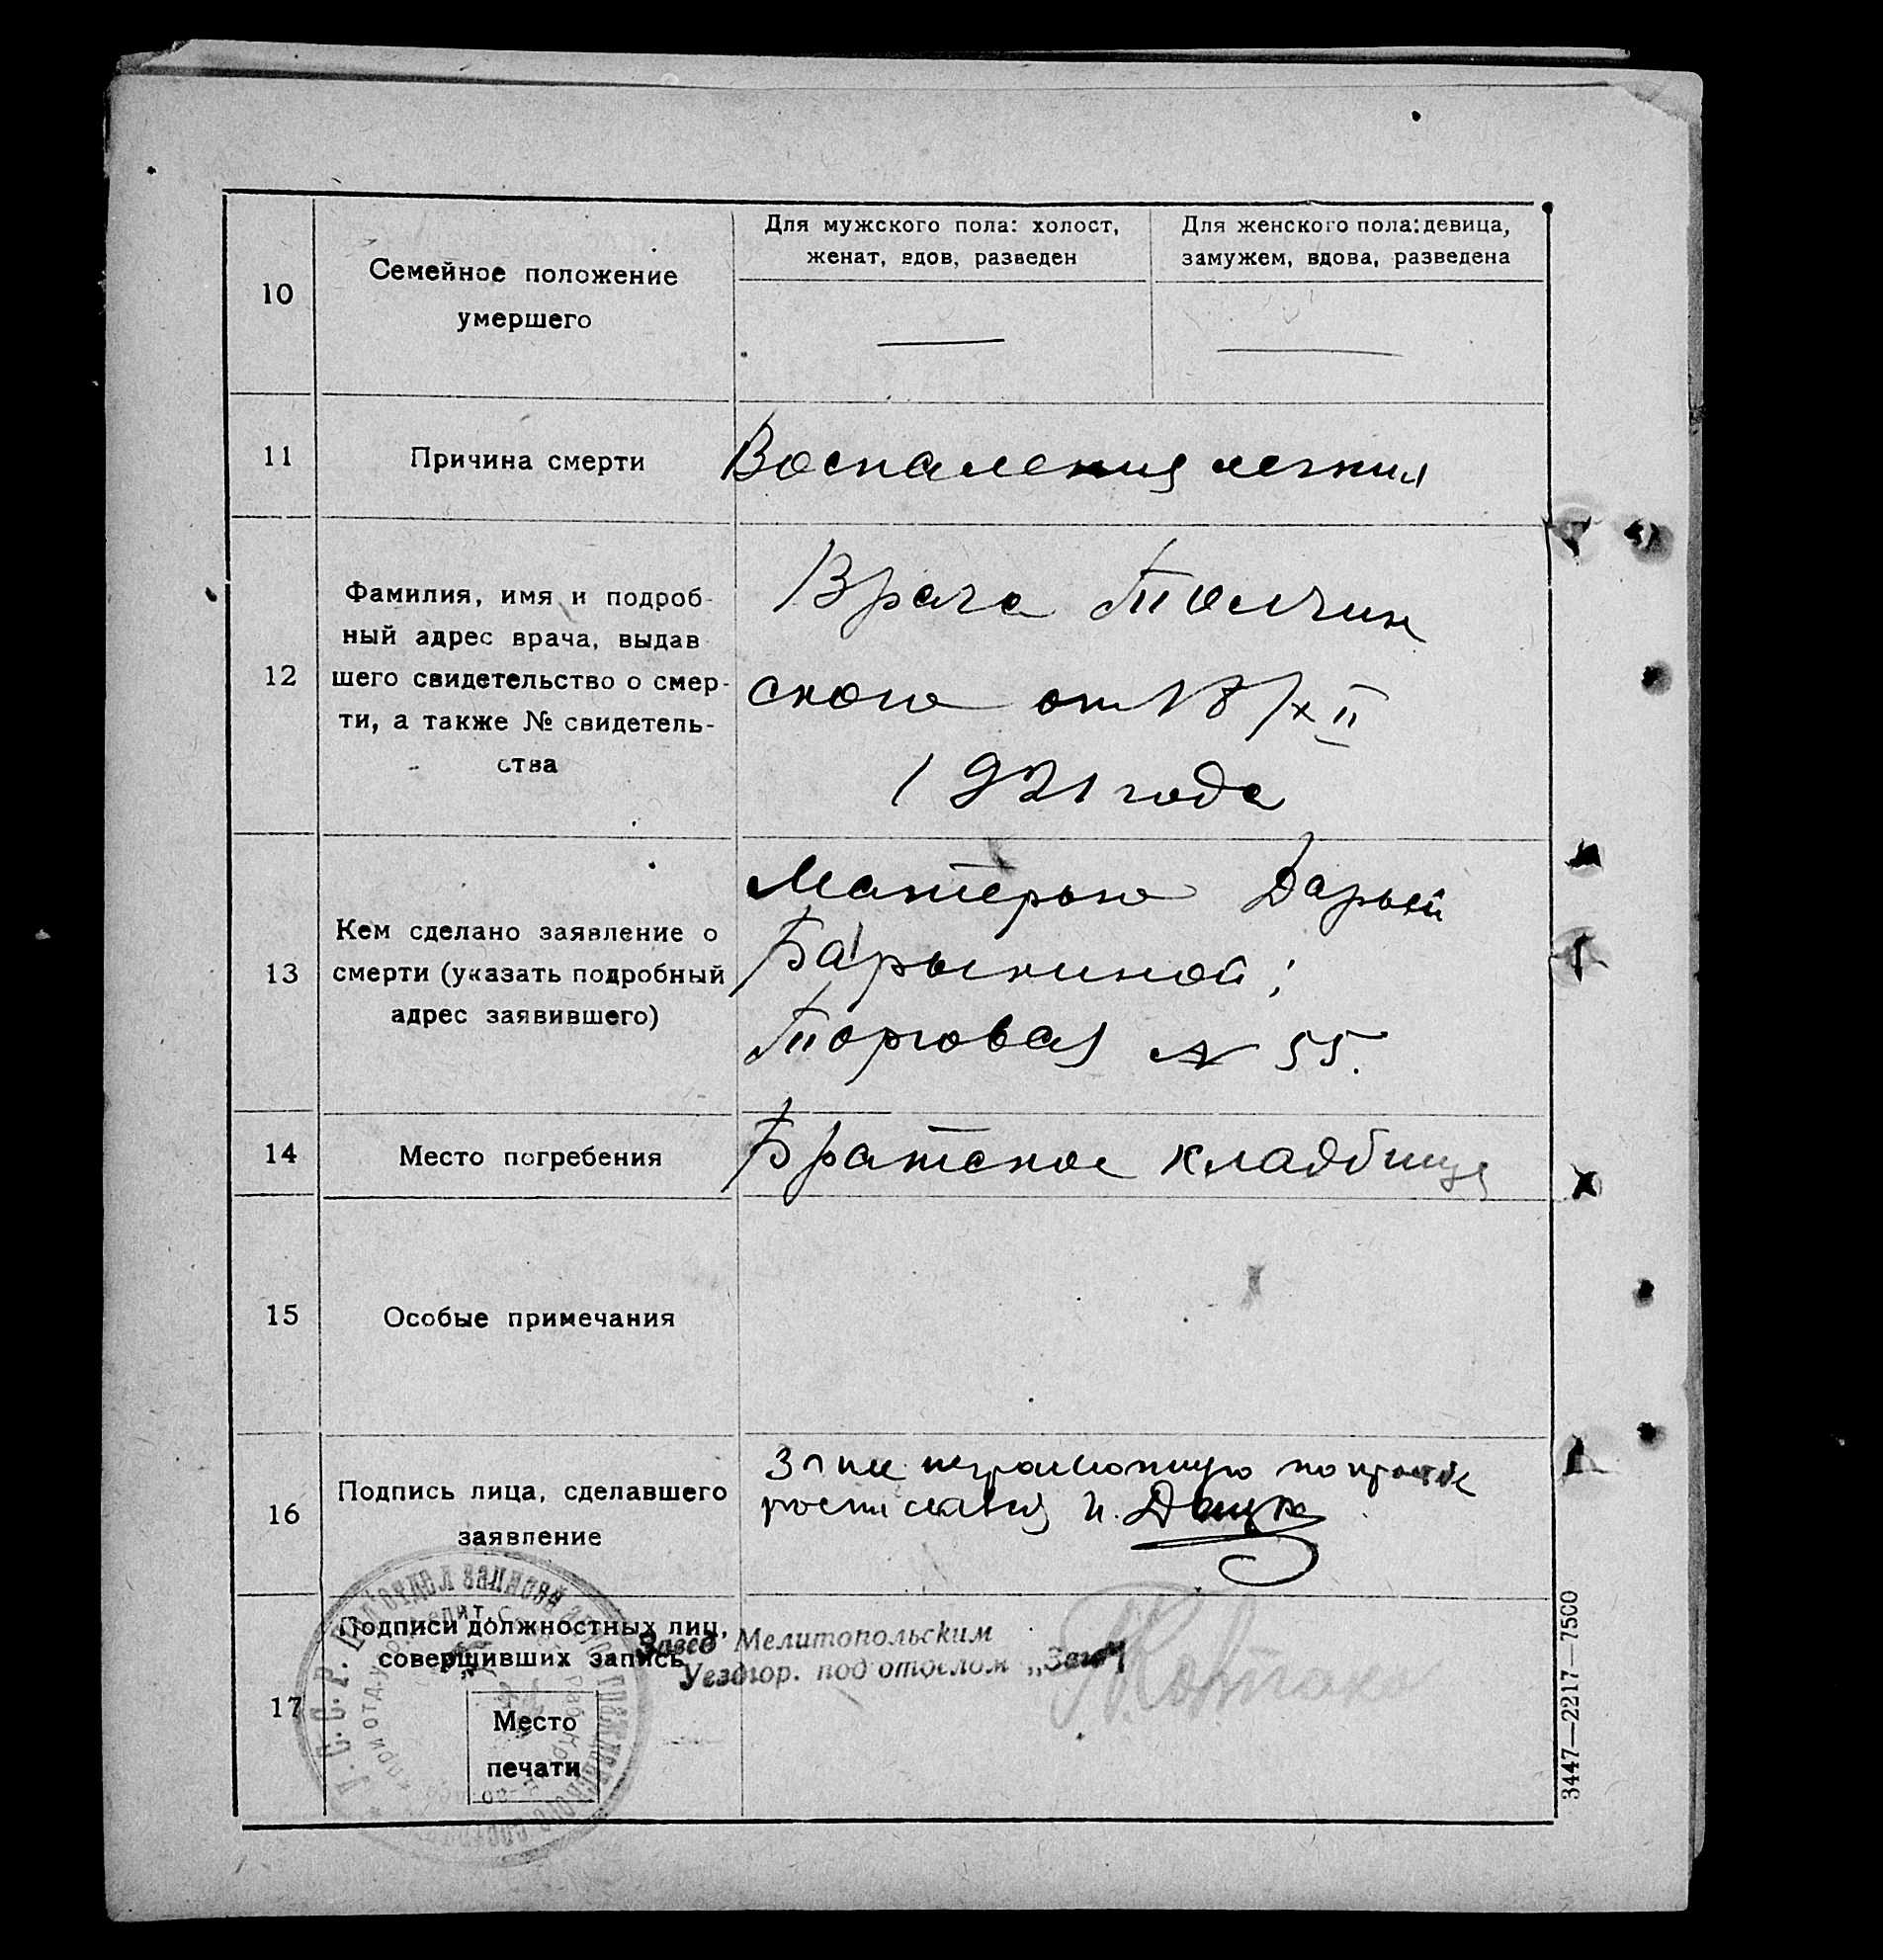 10
Семейное положение
умершего
Для мужского пола: холост,
женат, вдов, разведен
Для женского пола: девица,
замужем, вдова, разведена
11
Причина смерти
Воспаления легких
12
Фамилия, имя и подроб-
ный адрес врача, выдав
шего свидетельство о смер-
ти, а также № свидетель-
ства
Врача Толчин
ского от 18/XII
1921 года
13
Кем сделано заявление о
смерти (указать подробный
адрес заявившего)
Матерью Дарьей
Барыкиной;
Торговая № 55.
14
Место погребения
Братское кладбище
15
Особые примечания
16
Подпись лица, сделавшего
заявление
За неграмотную по просьбе
17
Подписи должностных лиц,
совершивших запись
Место
печати
Завед Мелитопольским
Уездюр. подотделом „Загс"
3447—2217—7500